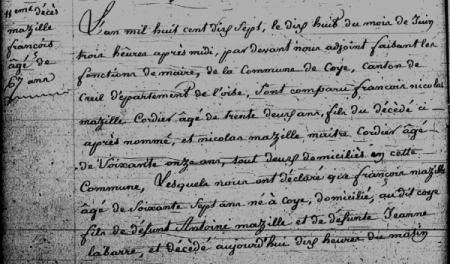 11eme décès
mazille
françois
âgé de
67 ans
L'an mil huit cent dix Sept, le dix huit du mois de Juin
trois heures après midi, par devant nous adjoint faisant les
fonctions de maire, de la Commune de Coye, Canton de
Creil département de l'oise, Sont comparu françois nicolas
mazille Cordier âgé de trente deux ans, fils du décédé ci
après nommé, et nicolas mazille maître Cordier âgé
de Soixante onze ans, tout deux domiciliés en cette
Commune, Lesquels nous ont déclaré que françois mazille
âgé de Soixante Sept ans né à Coye, domicilié, au dit coye
fils de défunt Antoine mazille et de défunte Jeanne
labarre, et décédé aujourd'hui dix heures du matin